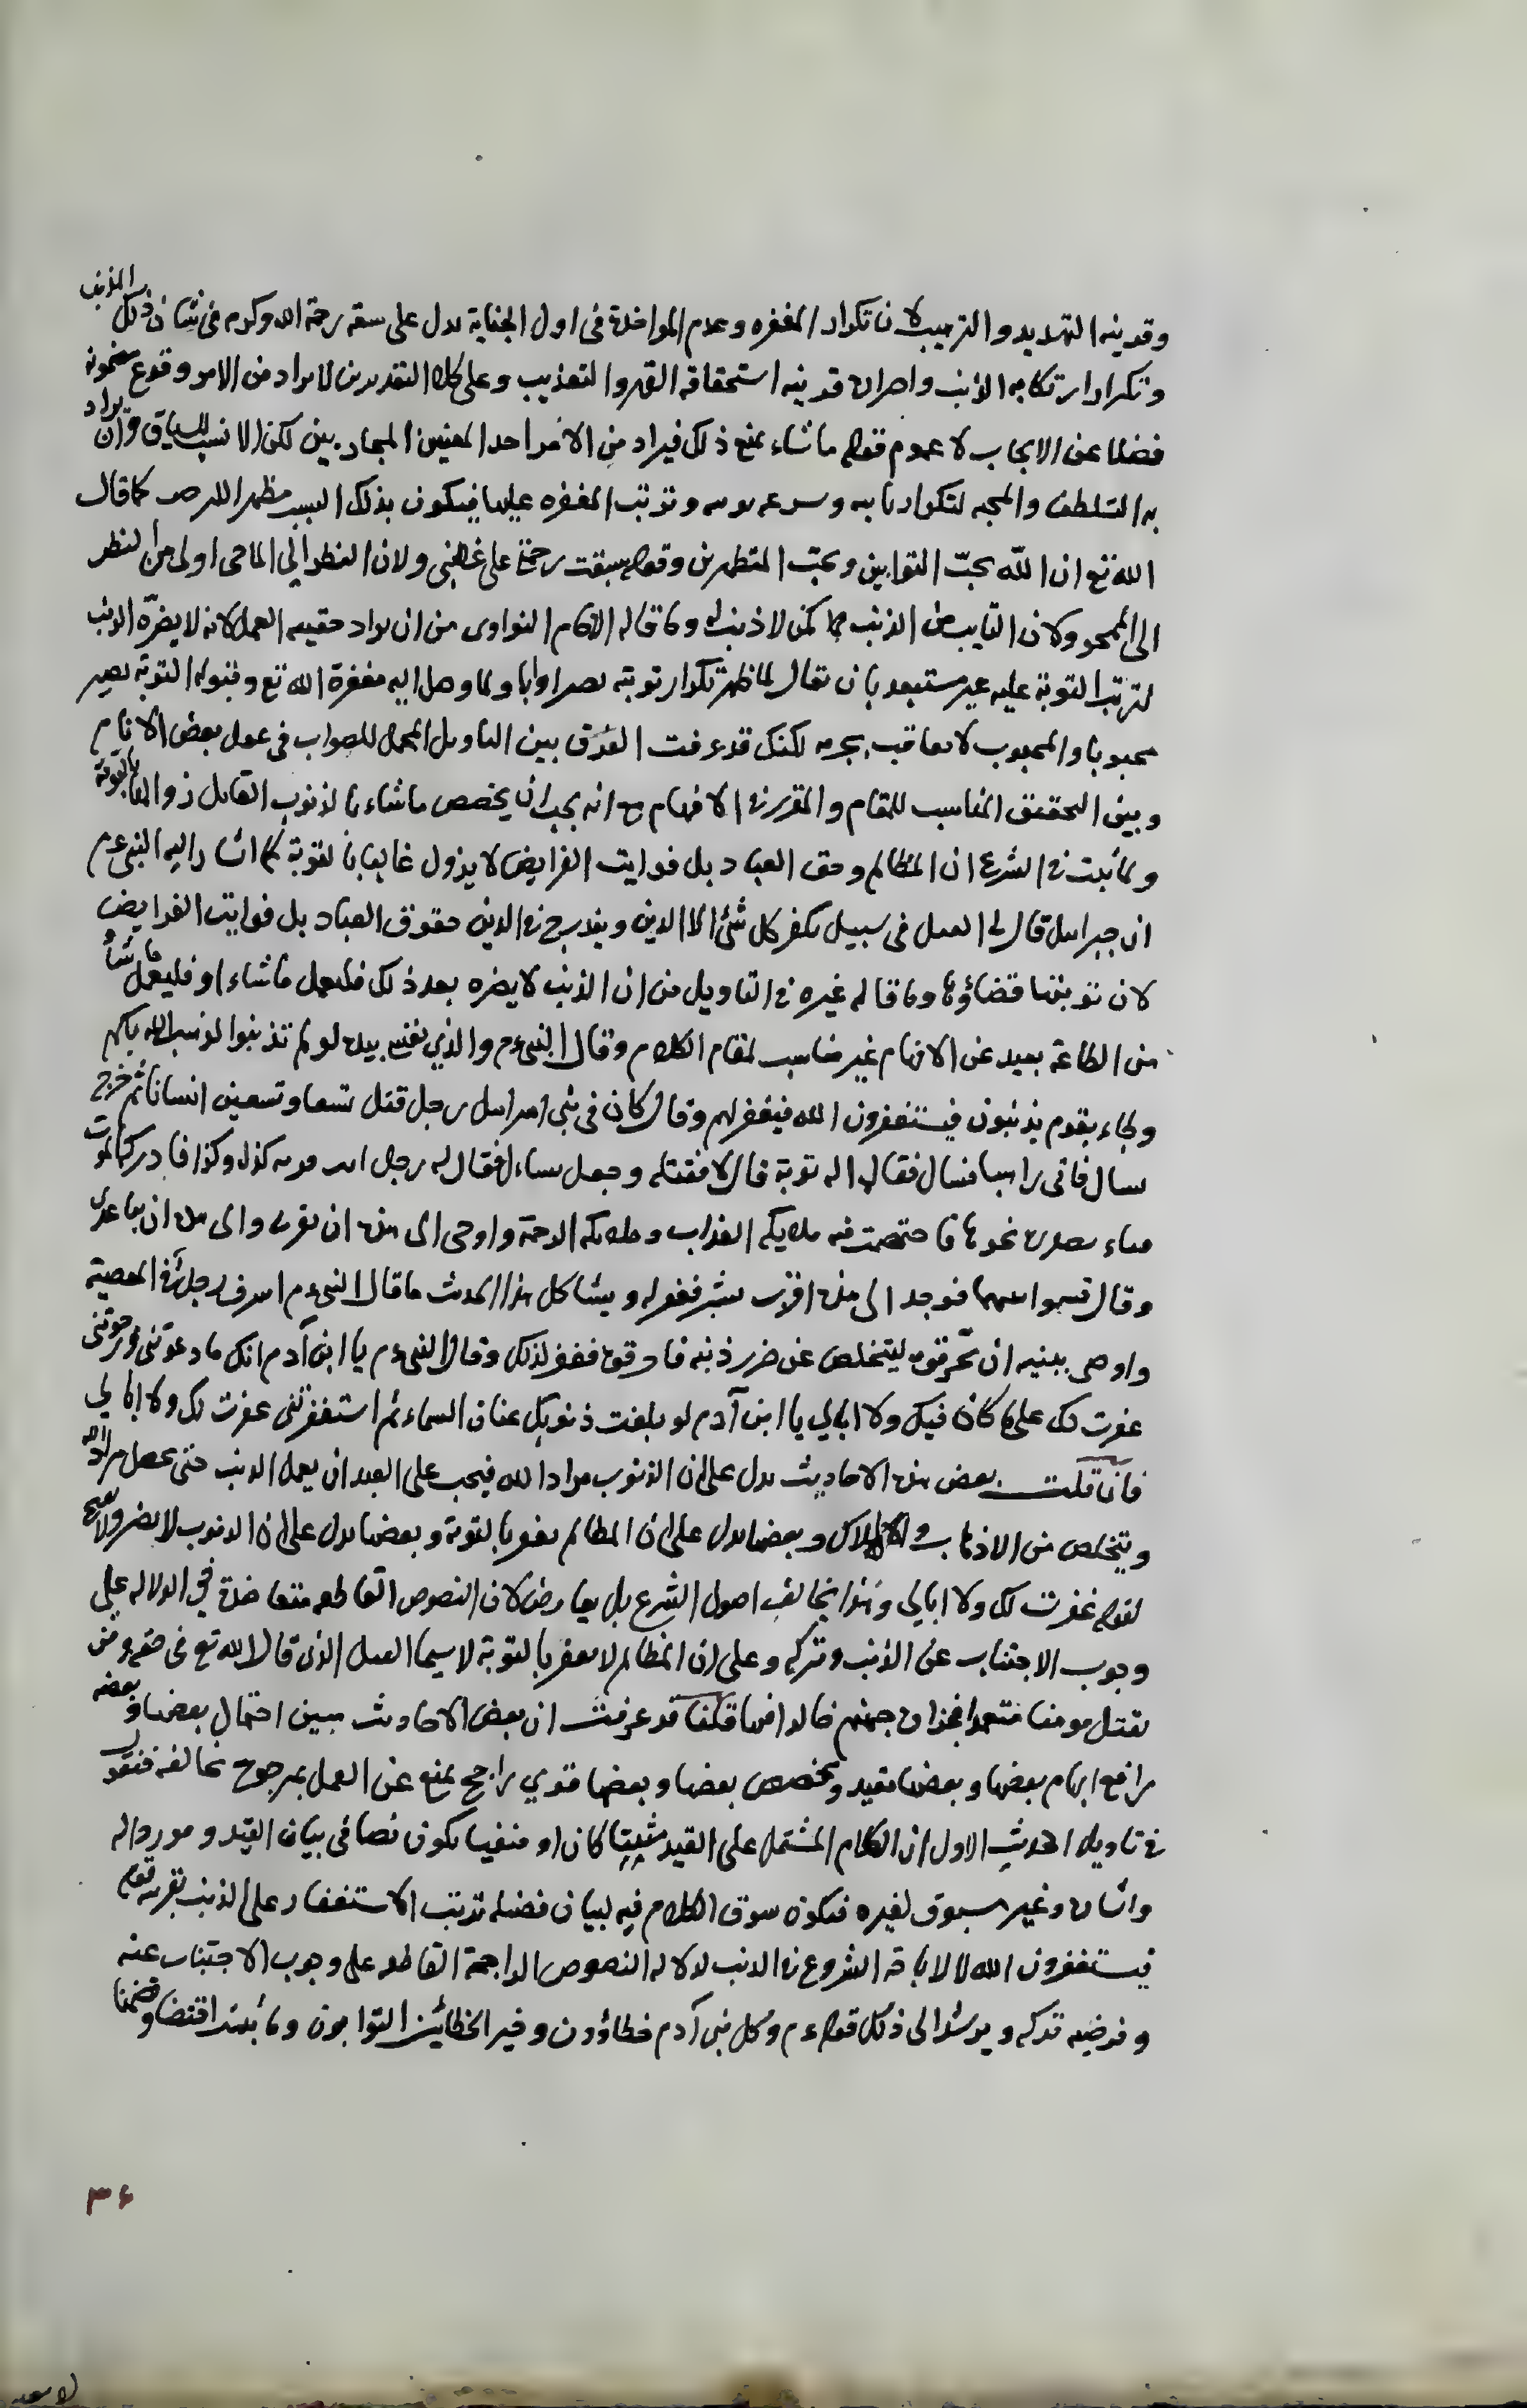 وقرينه التهديد والترهيب لان تكرار المغفره وعدم المواخذة فى اول الجناية يدل على سعة رحمة الله وكرم فى شان ذلك المذنب
وتكرار ارتكابه الذنب واصراره قرينه استحقاقه القهر والتعذيب وعلى كلا التقديرين لا يراد من الامر وقوع مضمونه
فضلا عن الايجاب لا عموم قوله ما شاء يمنع ذلك فيراد من الامر احد المعنيين المجازيين لكن الانسب للسياق ان يراد
به التلطف والمحبه لتكرار تابيه وسرعه توبته وترتب المغفره عليها فيكون بذلك السبب مظهرا للرحمه كما قال
الله تع ان اللّه يحبّ التوابين ويحبّ المتطهرين وقوله سبقت رحمتى على غضبى ولان النظر الى الماحى اولى من النظر
الى الممحو ولان التايب من الذنب كمن لا ذنب له وما قاله الامام النواوى من ان يراد حقيقه العمل لانه لا يضرّه الذنب
لترتب التوبة عليه غير مستبعد بان يقال لما ظهر تكرار توبته يصير اوابا ولما وصل اليه مغفرة الله تع وقبوله التوبة يصير
محبوبا والمحبوب لا يعاقب بجرمه لكنك قد عرفت الفرق بين التاويل المحمل للصواب فى عمل بعض الانام
وبين التحقيق المناسب للمقام والمقرر فى الافهام مع انه يجب ان يخصص ما شاء بالذنوب القابل زوالها بالتوبة
ولما ثبت فى الشرع ان المظالم وحق العباد بل فوايت الفرايض لا يزول غالبا بالتوبة كما اشار اليه النبى عم
ان جبرايل قال لى العمل فى سبيل يكفر كل شئ الا الدين ويندرج فى الدين حقوق العباد بل فوايت الفرايض
لان توبتها قضاؤها وما قاله غيره فى التاويل من ان الذنب لا يضره بعد ذلك فليعمل ما شاء او فليعمل ما شاء
من الطاعة بعيد عن الافهام غير مناسب لمقام الكلام وقال النبى عم والذي نفسى بيده لو لم تذنبوا لذهب الله بكم
ولجاء بقوم يذنبون فيستغفرون الله فيغفر لهم وقال كان فى بنى اسرايل رجل قتل تسعا وتسعين انسانا ثم خرج
يسال فاتى راهبا فسال فقال اله توبة قال لا فقتله وجعل يساءل فقال له رجل ايت قريه كذا وكذا فادركه الموت
فناء بصدره نحوها فاختصمت فيه ملايكه العذاب وملايكه الرحمة واوحى الى هذه ان تقربى والى هذه ان تباعدى
وقال قيسوا بينهما فوجد الى هذه اقرب بشبر فغفر له ويشاكل هذا الحديث ما قال النبى عم اسرف رجل فى المعصية
واوصى ببنيه ان تحرقوه ليتخلص عن ضرر ذنبه فاحرقوه فغفر لذلك وقال النبى عم يا ابن آدم انك ما دعوتنى ورجوتنى
غفرت لك على ما كان فيك ولا ابالى يا ابن آدم لو بلغت ذنوبك عنان السماء ثم استغفرتنى غفرت لك ولا ابالى
فان قلت بعض هذه الاحاديث يدل على ان الذنوب مراد الله فيجب على العبد ان يعمل الذنب حتى يحصل مراد الله
ويتخلص من الاذهاب والاهلاك وبعضها يدل على ان المظالم يغفر بالتوبة وبعضها يدل على ان الذنوب لا يضر ولا
لقوله غفرت لك ولا ابالى وهذا يخالف اصول الشرع بل يعارض لان النصوص القاطعه متعاضدة فى الدلاله على
وجوب الاجتناب عن الذنب وتركه وعلى ان المظالم لا يغفر بالتوبة لا سيما القتل الذى قال الله تع فى حقه ومن
يقتل مومنا متعمدا فجزاؤه جهنم خالدا فيها قلنا قد عرفت ان بعض الاحاديث يبين احتمال بعضها وبعضه
رافع ابهام بعضها وبعضها مقيد وتخصص بعضها وبعضها قوي راجح يمنع عن العمل بمرجوح يخالفه فنقول
فى تاويل الحديث الاول ان الكلام المشتمل على القيد مثبتا كان او منفيا يكون نصا فى بيان القيد ومورد اله
واشاره وغير مسبوق لغيره فيكون سوق الكلام فيه لبيان فضله ترتب الاستغفار على الذنب بقرينه قوله
فيستغفرون الله لا لاباحة الشروع فى الذنب لدلاله النصوص الراجحة القاطعه على وجوب الاجتناب عنه
وفرضيه تركه ويرشد الى ذلك قوله عم وكل بنى آدم خطاؤون وخير الخطائين التوابون وما ثبت اقتضاء وضمنا
٣٤